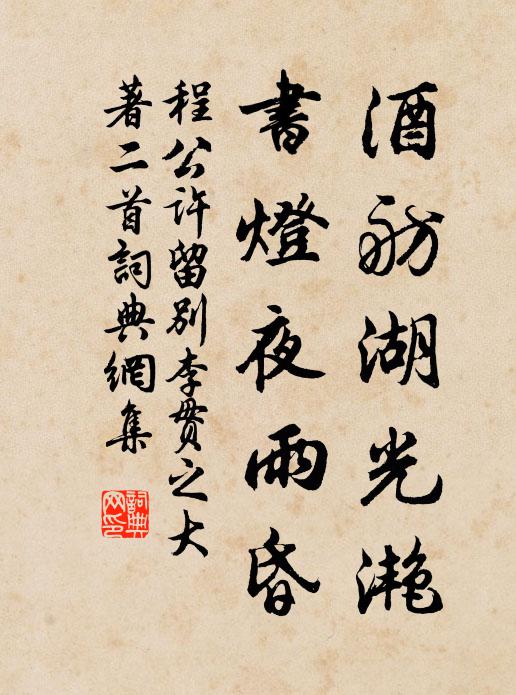 酒舫湖光灔
書燈夜雨昏
程公許留別李貫之大
著二首詞典網集
詞典网印